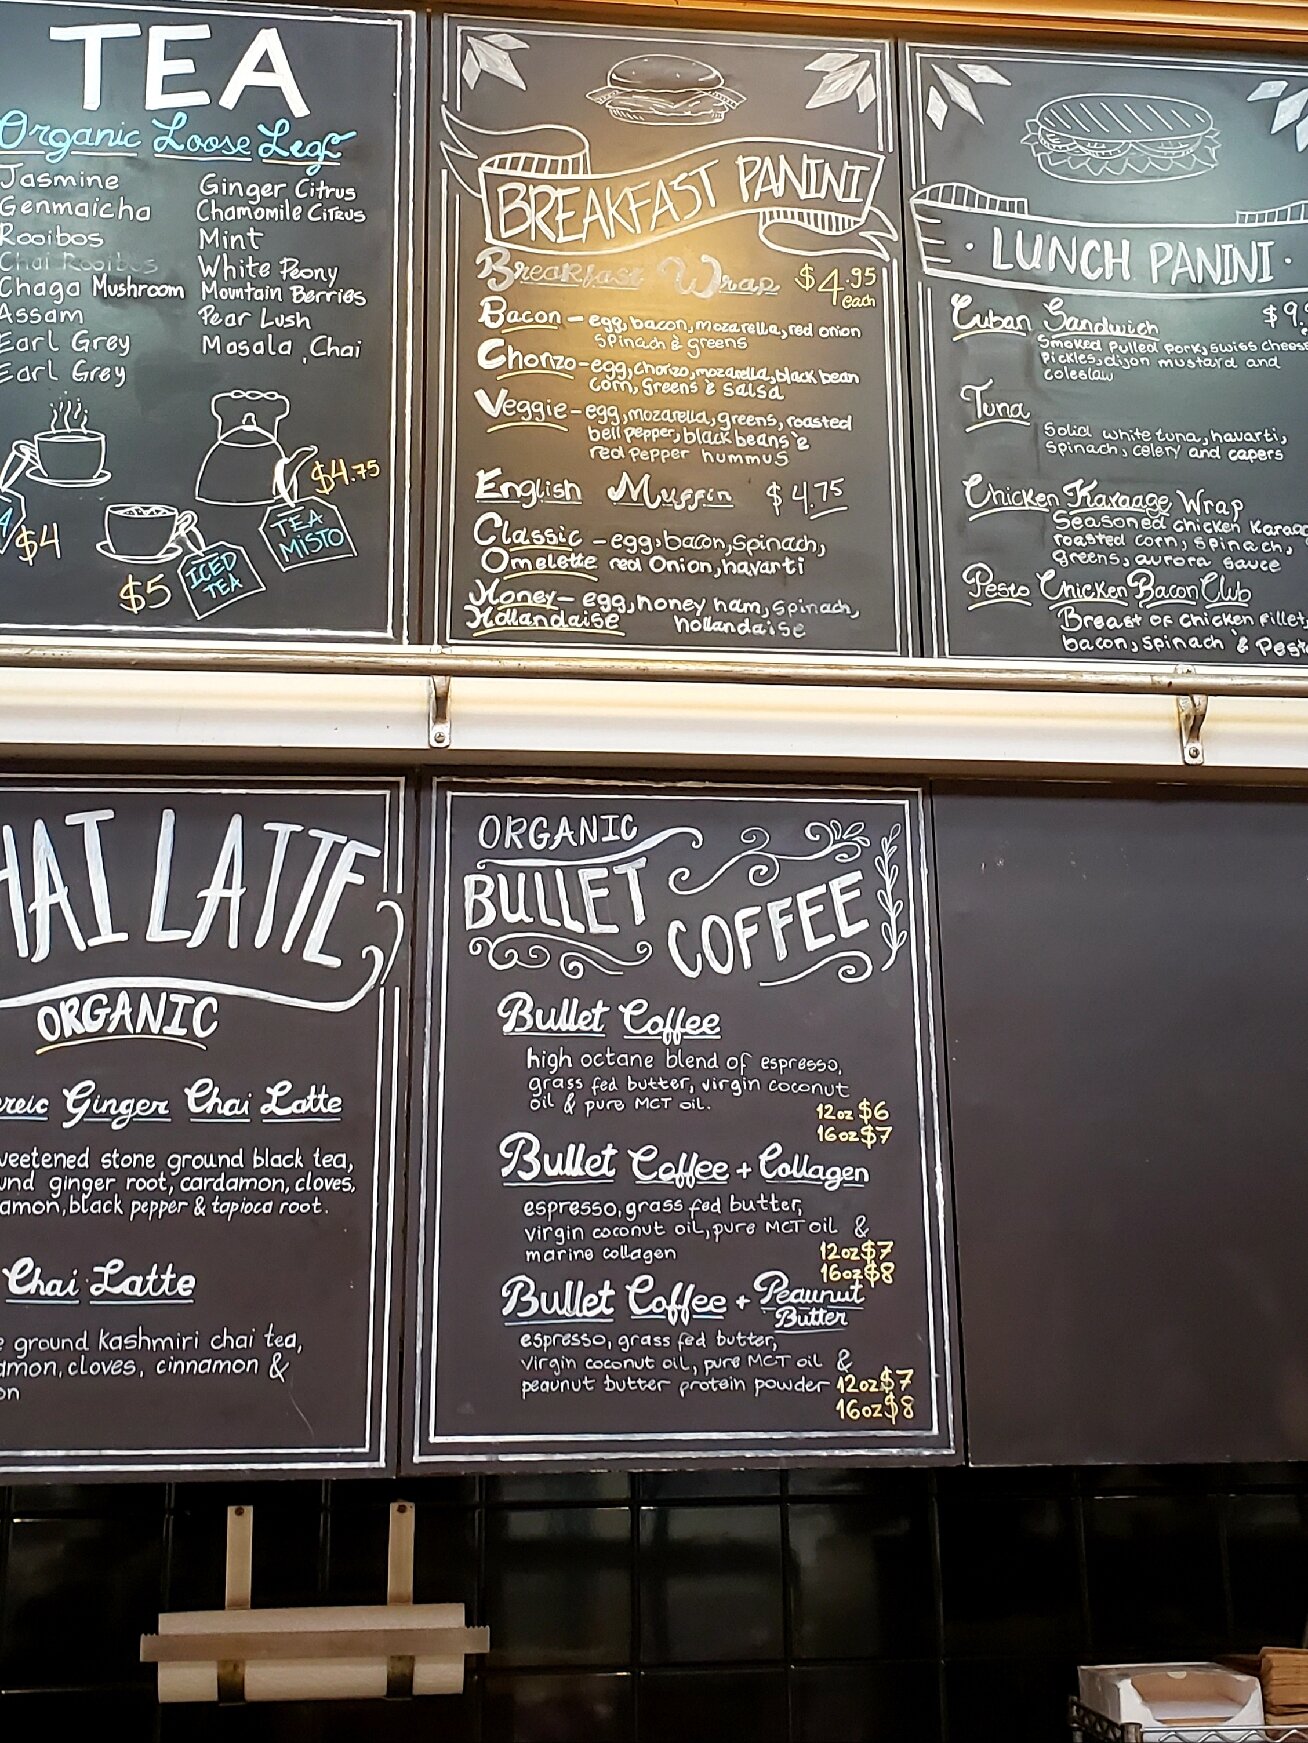 TEA
Organic Loose Leaf
Jasmine
Genmaicha
Rooibos
Chai Rooibos
Chaga Mushroom
Assam
Earl Grey
Earl Grey
Ginger Citrus
Chamomile Citrus
Mint
White Peony
Mountain Berries
Pear Lush
Masala Chai
$4.75
TEA
MISTO
$4
$5
ICED
TEA
BREAKFAST PANINI
Breakfast Wrap $4.95
each
Bacon - egg, bacon, mozarella, red onion
spinach & greens
Chorizo - egg, chorizo, mozarella, black bean
corn, greens & salsa
Veggie - egg, mozarella, greens, roasted
bell pepper, black beans &
red pepper hummus
English Muffin $4.75
Classic - egg, bacon, spinach,
Omelette red onion, havarti
Honey - egg, honey ham, spinach,
Hollandaise hollandaise
· LUNCH PANINI ·
Cuban Sandwich $9.
Smoked pulled pork, swiss cheese
pickles, dijon mustard and
coleslaw
Tuna
Solid white tuna, havarti,
spinach, celery and capers
Chicken Karaage Wrap
Seasoned chicken Karaag
roasted corn, spinach,
greens, aurora sauce
Pesto Chicken Bacon Club
Breast of chicken fillet,
bacon, spinach & Pesto
HAI LATTE
ORGANIC
reic Ginger Chai Latte
weetened stone ground black tea,
und ginger root, cardamon, cloves,
amon, black pepper & tapioca root.
Chai Latte
e ground kashmiri chai tea,
amon, cloves, cinnamon &
on
ORGANIC
BULLET
COFFEE
Bullet Coffee
high octane blend of espresso,
grass fed butter, virgin coconut
oil & pure MCT oil.
12oz $6
16oz $7
Bullet Coffee + Collagen
espresso, grass fed butter,
virgin coconut oil, pure MCT oil &
marine collagen 12oz $7
16oz $8
Bullet Coffee + Peaunut
Butter
espresso, grass fed butter,
virgin coconut oil, pure MCT oil &
peaunut butter protein powder 12oz $7
16oz $8